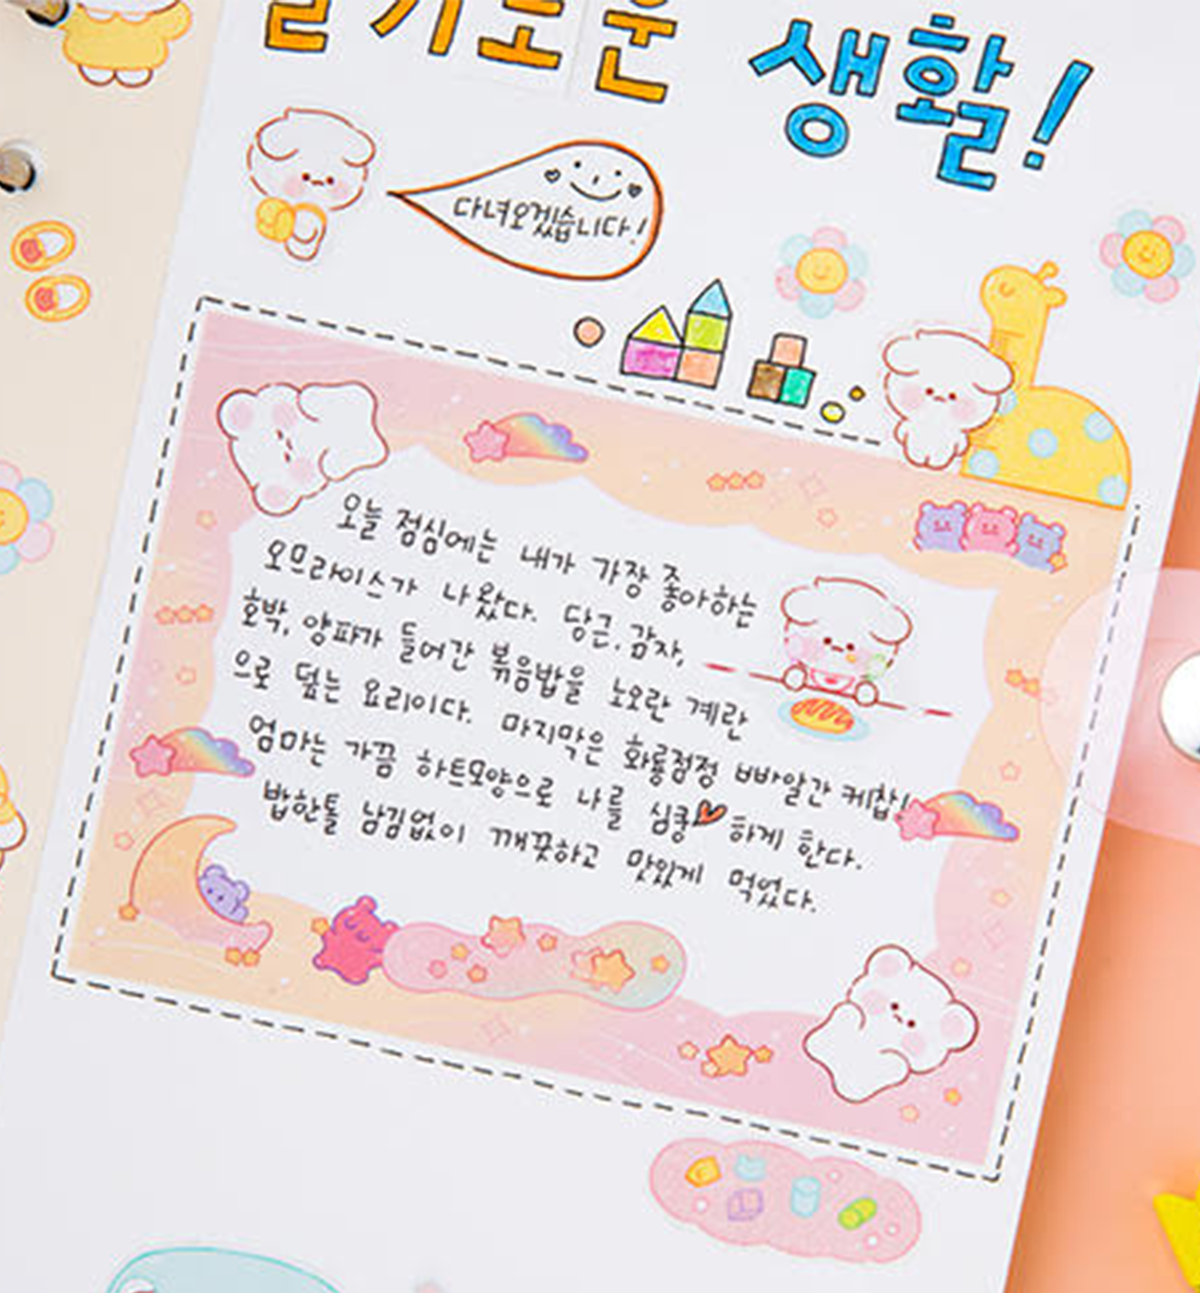 슬기로운 생활!
다녀오겠습니다!
오늘 점심에는 내가 가장 좋아하는
오므라이스가 나왔다. 당근, 감자,
호박, 양파가 들어간 볶음밥을 노오란 계란
으로 덮는 요리이다. 마지막은 화룡점정 빠알간 케찹!
엄마는 가끔 하트모양으로 나를 심쿵 하게 한다.
밥한톨 남김없이 깨끗하고 맛있게 먹었다.